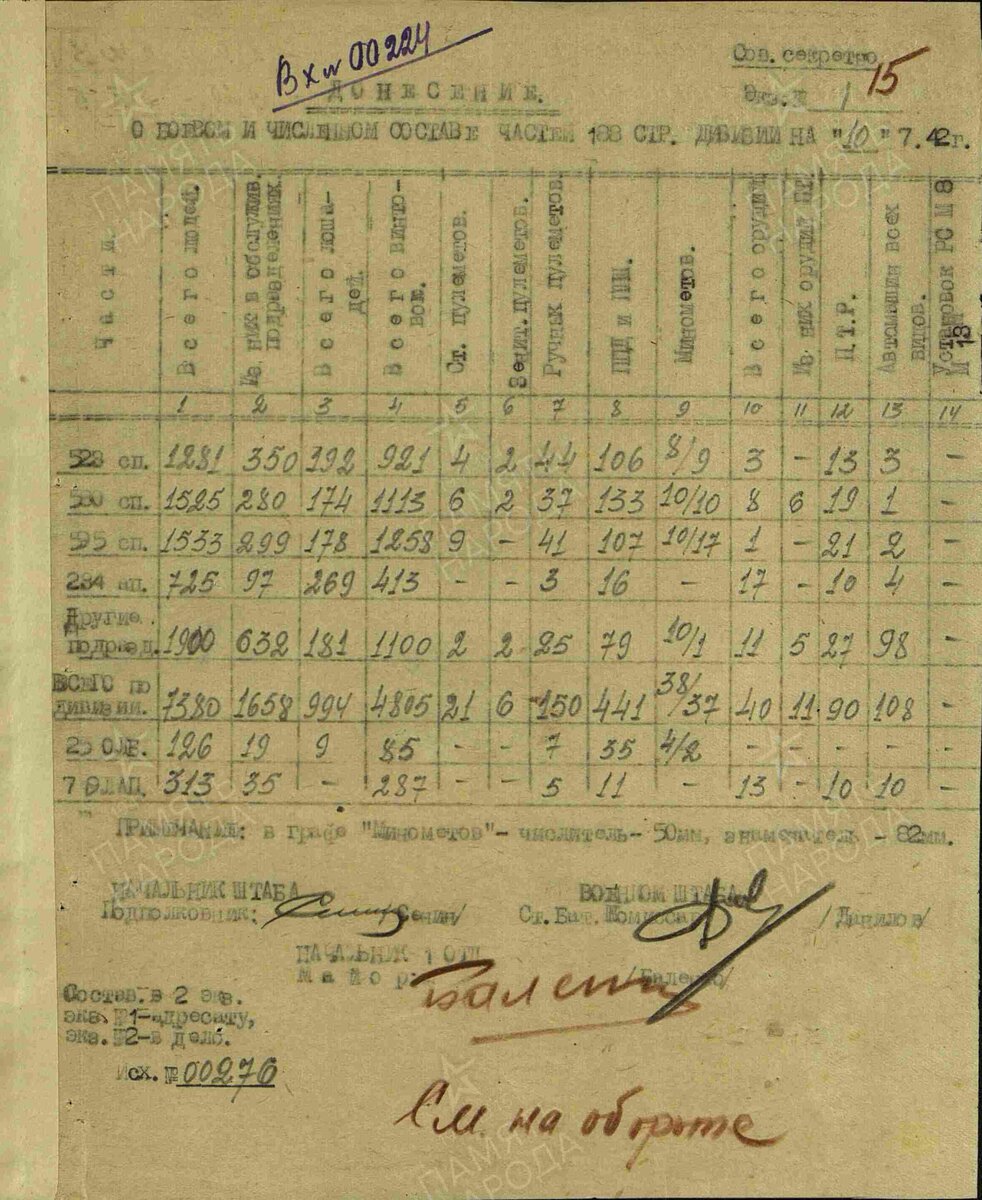 Вх № 00224
Сов. секретно
15
Экз. № 1
ДОНЕСЕНИЕ.
О БОЕВОМ И ЧИСЛЕННОМ СОСТАВЕ ЧАСТЕЙ 188 СТР. ДИВИЗИИ НА "10" 7.42г.
Части | Всего людей. | Из них в обслужив. подразделениях. | Всего лошадей. | Всего винтовок. | Ст. пулеметов. | Зенит. пулеметов. | Ручных пулеметов. | ППД и ПП. | Минометов. | Всего орудий | Из них орудий ПТ. | П.Т.Р. | Автомашин всех видов. | Установок РС М 8 М 13
1 2 3 4 5 6 7 8 9 10 11 12 13 14
523 сп. 1281 350 192 921 4 2 44 106 8/9 3 - 13 3 -
580 сп. 1525 280 174 1113 6 2 37 133 10/10 8 6 19 1 -
595 сп. 1533 299 178 1258 9 - 41 107 10/17 1 - 21 2 -
234 ап. 725 97 269 413 - - 3 16 - 17 - 10 4 -
Другие подразд. 1900 632 181 1100 2 2 25 79 10/1 11 5 27 98 -
ВСЕГО по дивизии. 7380 1658 994 4805 21 6 150 441 38/37 40 11 90 108 -
25 ОЛБ. 126 19 9 85 - - 7 35 4/2 - - - - -
7 313 35 - 287 - - 5 11 - 13 - 10 10 -
ПРИМЕЧАНИЕ: в графе "Минометов" - числитель - 50мм, знаменатель - 82мм.
НАЧАЛЬНИК ШТАБА
ВОЕНКОМ ШТАБА
Подполковник: /Сенин/
Ст. Бат. Комиссар /Данилов/
НАЧАЛЬНИК 1 ОТД.
Майор: /Баленко/
Состав. в 2 экз.
экз. №1-адресату,
экз. №2-в дело.
Исх. № 00276
См. на обороте
ПАМЯТЬ НАРОДА